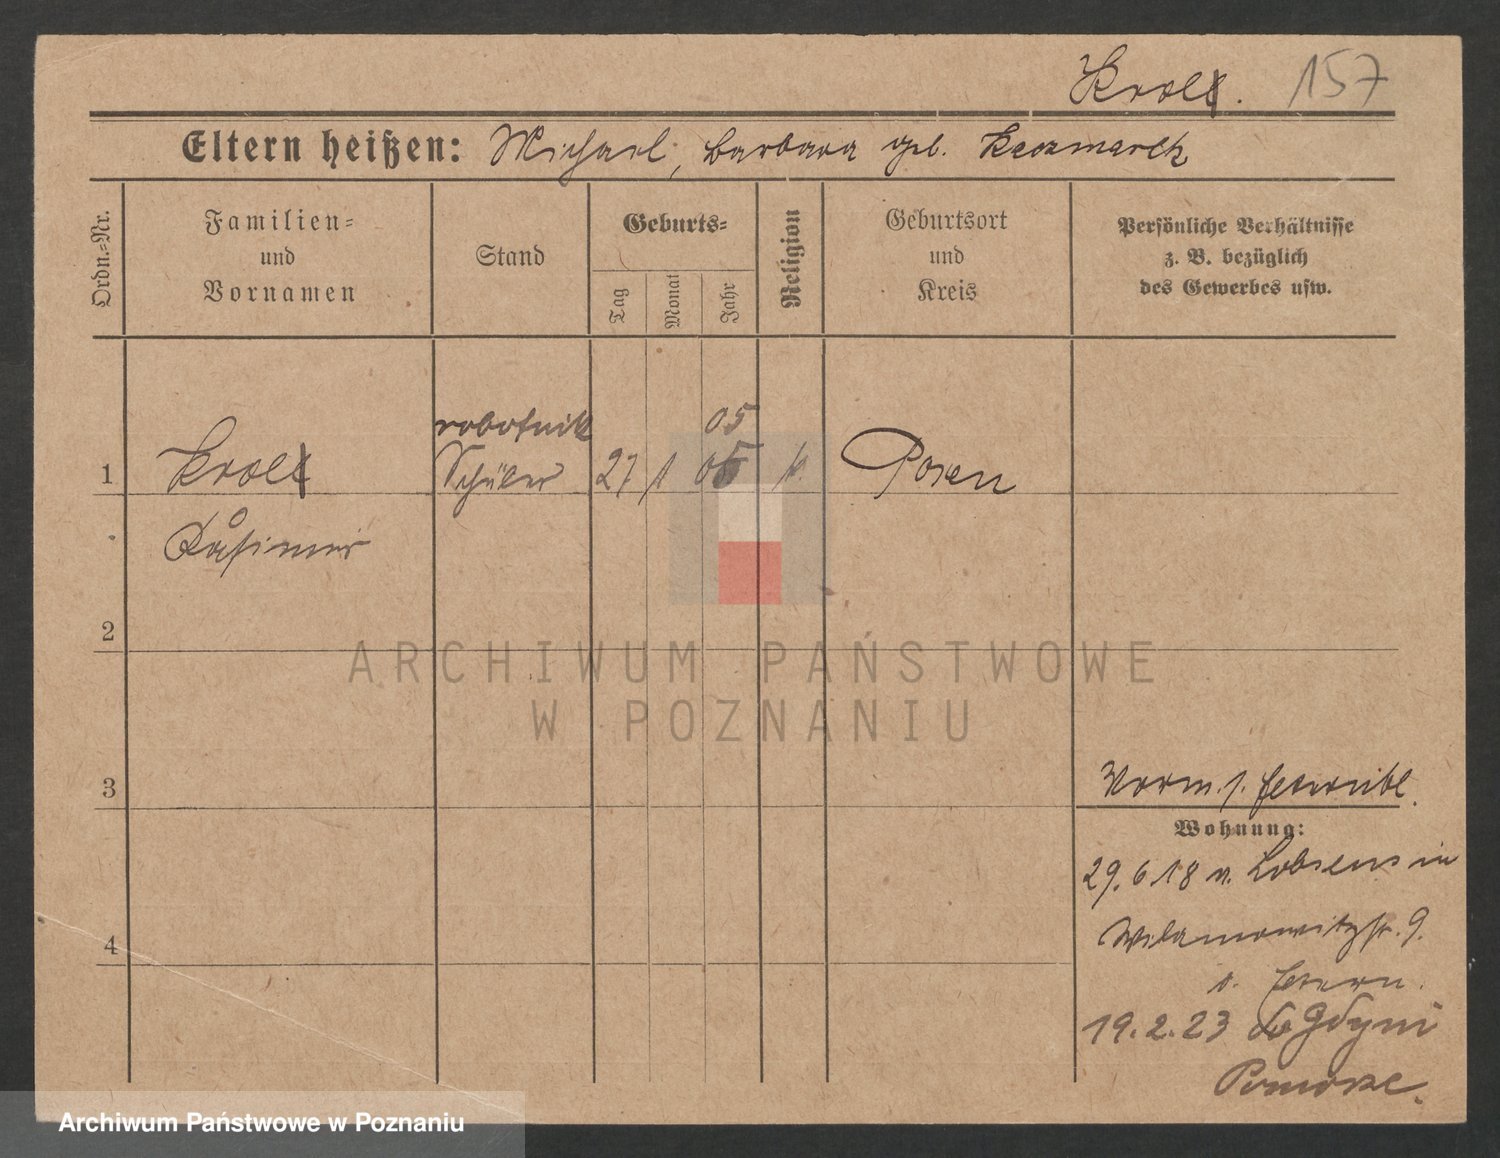 Kroll. 157
Eltern heißen: Michael, Barbara geb. Kaczmarek
Ordn.-Nr.
Familien-
und
Vornamen
Stand
Geburts-
Tag
Monat
Jahr
Religion
Geburtsort
und
Kreis
Persönliche Verhältnisse
z. B. bezüglich
des Gewerbes usw.
robotnik 05
1 Kroll Schüler 27 1 05 k. Posen
Kasimir
2
3
Vorm. s.
Wohnung:
29. 6 18 v. Lobsens in
Wilamowitzstr. 9.
s. Eltern.
19. 2. 23 Gdyni
Pomorze.
ARCHIWUM PAŃSTWOWE
W POZNANIU
4
Archiwum Państwowe w Poznaniu